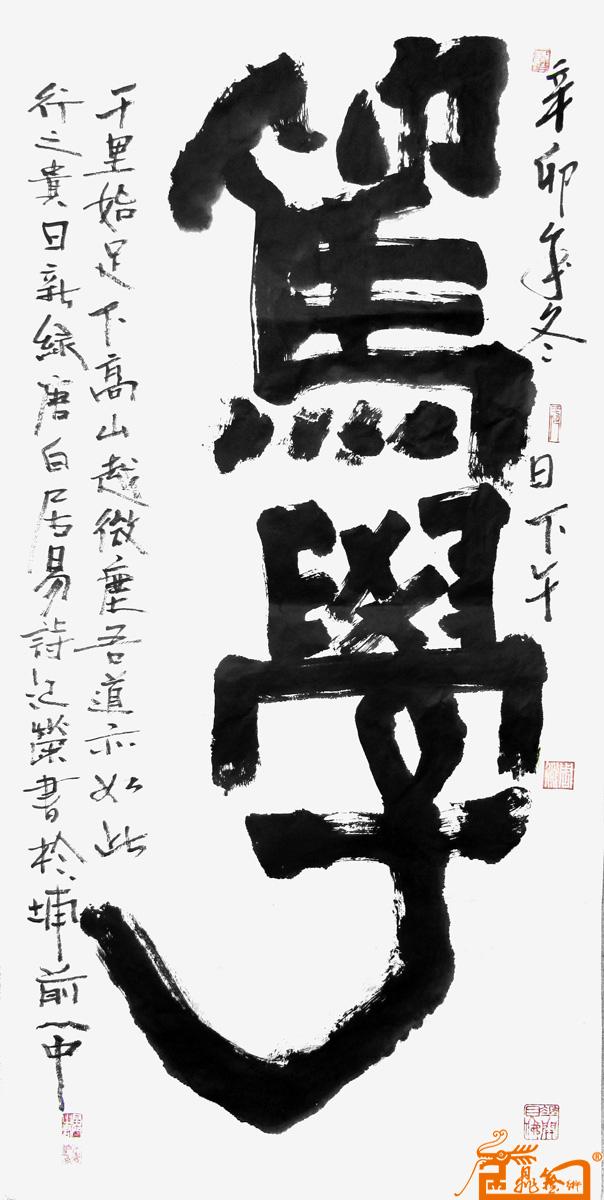 辛卯年冬日下午
篤學
千里始足下高山起微塵吾道亦如此
行之貴日新錄唐白居易詩記榮書於埔前中